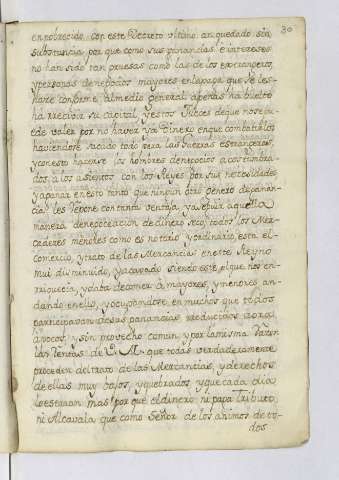 30
enpobrecido, con este Decreto vltimo, an quedado sin
substancia, por que como sus ganancias, è intereses
no han sido tan gruesas como las de los extrangeros,
y personas de negocios mayores en la paga que se les
haze conforme al medio general apenas ha buelto
ha recivir su capital, y estos Juices de que no se pu-
ede valer por no haver ya Dinero en que combatirlos
haviendose sacado todo para las Guerras estrangeras,
y con esto hacerse los hombres de negocios a costumbra-
dos, a los asientos con los Reyes por sus necesidades
y a ganar en esto tanto que ningun otro genero de ganan-
cia les Vepone con tanta ventaja, y a seguir aquella
manera de negociacion de dinero seco, todos los Mer-
caderes menores como es notario y ordinario, esta el
Comercio, y trato de las Mercancias en este Reyno
mui disminuido, y acavado siendo este el que nos en-
riquecia, y daba de comer à mayores, y menores, an-
dando en ello, y ocupandose en muchos que todos
participavan de sus ganancias reducidas aora à
à pocos, y sin provecho comun, y por la misma razon
las Rentas de V. M. que todas verdaderamente
proceden del trato de las Mercancias, y derechos
de ellas muy bajos, y quebrados, y que cada dia
lo estaran mas, por que el dinero ni paga tributo,
ni Alcavala que como Señor de los animos de to-
dos